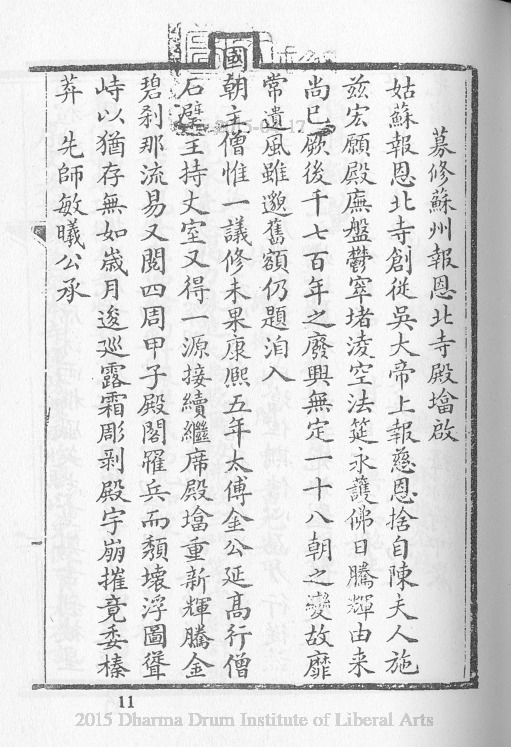 募修蘇州報恩北寺殿墖啟
姑蘇報恩北寺創從吳大帝上報慈恩捨自陳夫人施
兹宏願殿廡盤鬱窣堵淩空法筵永護佛日騰輝由来
尚已厥後千七百年之廢興無定一十八朝之變故靡
常遺風雖邈舊額仍題洎入
國朝主僧惟一議修未果康熙五年太傅金公延高行僧
石壁主持丈室又得一源接續繼席殿墖重新輝騰金
碧刹那流易又閲四周甲子殿閣罹兵而頽壞浮圖聳
峙以猶存無如歲月逡廵露霜彫剥殿宇崩摧竟委榛
莽 先師敏曦公承
11
2015 Dharma Drum Institute of Liberal Arts